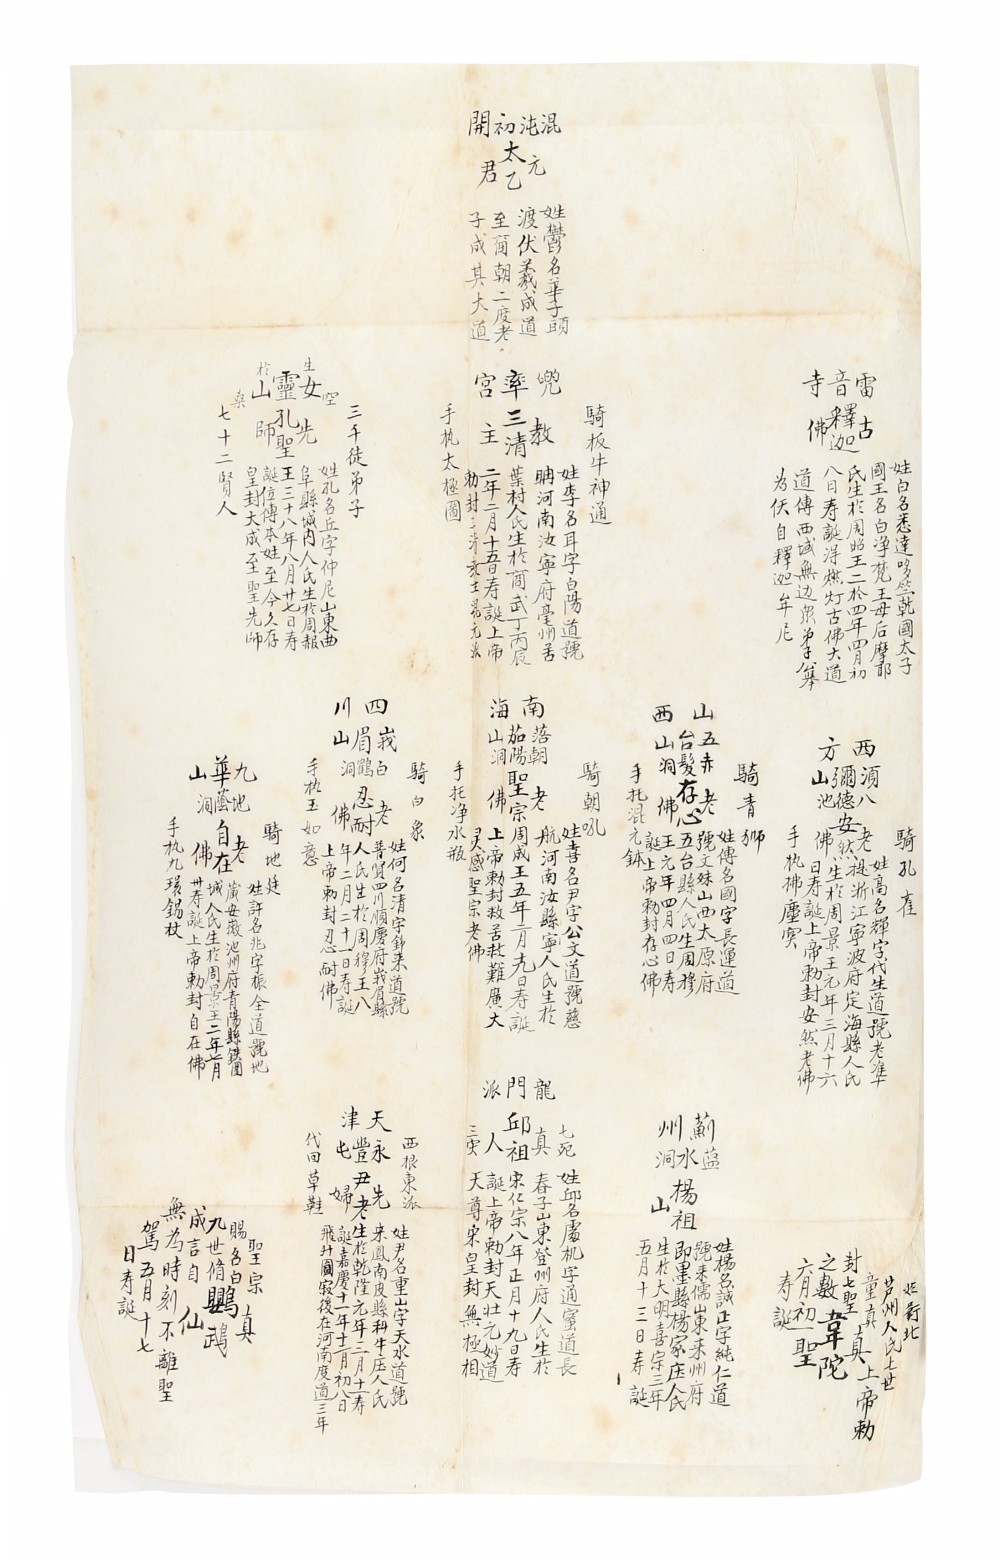 混沌初開
太乙
元君
姓鬱名華子頭
渡伏羲成道
至商朝二度老
子成其大道
雷音寺
古釋迦佛
姓白名悉達哆竺乾國太子
國王名白净梵王母后摩耶
氏生於周昭王二於四年四月初
八日寿誕浮燃灯古佛大道
道傳西域無边衆弟子
為佅自釋迦牟尼
兜率宮
教三清主
騎板牛神通
手执太極圖
姓李名耳字白陽道號
聃河南汝寧府亳州苦
葉村人民生於商武丁丙辰
二年二月十五日寿誕上帝
勅封三清
女靈山
生於
空桑
先孔聖師
三千徒弟子
七十二賢人
姓孔名丘字仲尼山東曲
阜縣城内人氏生於周報
王三十八年八月廿七日寿
誕位傳本姓至今久存
皇封大成至聖先師
西方
須彌山
八德池
老安然佛
騎孔雀
手执拂塵
姓高名輝字代生道號老準
提浙江寧波府定海縣人氏
生於周景王元年三月十六
日寿誕上帝勅封安然老佛
山西
五台山
赤髪洞
老存心佛
騎青獅
手托混元鉢
姓傳名國字長運道
號文殊山西太原府
五台縣人氏生周穆
王元年四月四日寿
誕上帝勅封存心佛
南海
落茄山
朝陽洞
老聖宗佛
騎朝吼
手托净水瓶
姓喜名尹字公文道號慈
航河南汝縣寧人民生於
周成王五年二月十九日寿誕
上帝勅封救苦救難廣大
灵感聖宗老佛
四川
峩眉山
白鶴洞
老忍耐佛
騎白象
手执玉如意
姓何名清字鈔来道號
普賢四川順慶府峩眉縣
人氏生於周穆王八
年二月二十一日寿誕
上帝勅封忍耐佛
九華山
地蔭洞
老自在佛
騎地廷
手执九環錫杖
姓許名兆字振全道號地
蔵安徽池州府青陽縣鉄園
城人民生於周景王二年七月
卅寿誕上帝勅封自在佛
龍門派
邱祖
真人
七死
三灾
姓邱名處机字通蜜道長
春子山東登州府人民生於
宋仁宗八年正月十九日寿
誕上帝勅封天壮元妙道
天尊宋皇封無極相
薊州
藍水洞
楊祖
山
姓楊名誠正字純仁道
號来儒山東来州府
即墨縣楊家庄人氏
生於大明喜宗三年
五月十三日寿誕
天津
永豐屯
先尹老婦
西根東派
代田草鞋
姓尹名重山字天水道號
来鳳南皮縣科牛庄人氏
生於乾隆元年三月十一寿
誕嘉慶十一年十二月初八日
飛升圓寂後在河南度道三年
姓蒋北
芦州人氏七世
童真真上帝勅
封七聖韋陀
之數初一聖
六月
寿誕
聖宗真
賜名白鸚鵡
九世脩仙
成言自
無為時刻不離聖
駕五月十七
日寿誕